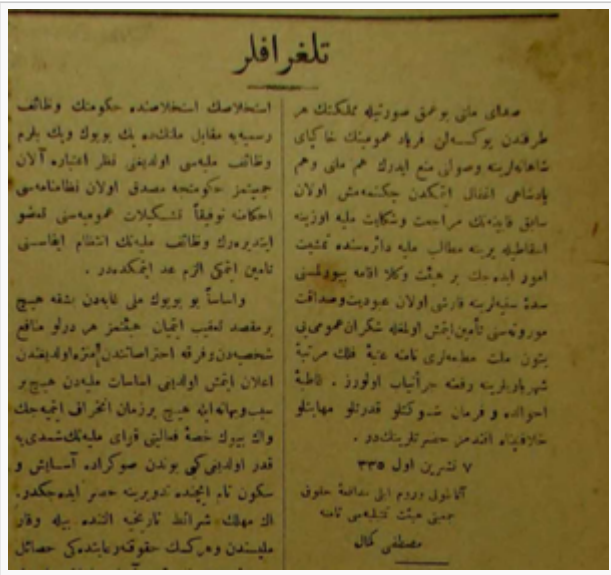 تلغرافلر
صدای ملتی بوغمق صورتیله مملکتك هر
طرفندن یوکسه‌لن فریاد عمومینك خاکپای
شاهانه‌لرینه وصولنی منع ایدرك هم ملتی وهم
پادشاهی اغفال ایتمکدن چکنمه‌مش اولان
سابق قابینه‌نك مراجعت وشکایت ملیه اوزینه
اسقاطیله یرینه مطالب ملیه دائره‌سنده تمشیت
امور ایده‌جك بر هیئت وکلا اقامه بیورلمسی
سدهٔ سنیه‌لرینه قارشی اولان عبودیت وصداقت
موروثه‌سنی تأمین ایتمش اولمغله شکران عمومی‌یی
بتون ملت نامنه عتبهٔ فلك مرتبهٔ
شهریاریلرینه رفعه جرأتیاب اولورز . قاطبهٔ
احوالده و فرمان شوکتلو قدرتلو مهابتلو
خلافپناه افندمز حضرتلرینك‌در .
۷ تشرین اول ۳۳۵
آناطولی وروم ایلی مدافعهٔ حقوق
جمعیتی هیئت تمثیلیه‌سی نامنه
مصطفی کمال
استخلاصك استخلاصنده حکومتك وظائف
رسمیه‌یه مقابل ملتك‌ده پك بویوك وپك بلرم
وظائف ملیه‌سی اولدیغنی نظر اعتباره آلان
جمعیتمز حکومتجه مصدق اولان نظامنامه‌سی
احکامنه توفیقاً تشکیلات عمومیه‌سنی
ایتدیره‌رك وظائف ملیه‌نك انتظام ایفاسنی
تأمین ایتمکی الزم عد ایتمکده‌در .
واساساً بو بویوك ملی غایه‌دن بشقه هیچ
بر مقصد تعقیب ایتمیان هیئتمز هر درلو منافع
شخصیه‌دن وفرقه احتراصاتندن منزه اولدیغندن
اعلان ایتمش اولدیغی اساسات ملیه‌دن هیچ بر
سبب وبهانه ایله هیچ برزمان انحراف ایتمیه‌جك
واك بیوك حصهٔ فعالیتی قوای ملیه‌نك شمدی‌یه
قدر اولدیغی کبی بوندن صوکراده آسایش و
سکون تام ایچنده تدویرینه حصر ایده‌جکدر.
اك مهلك شرائط تاریخیه التنده بیله وقار
ملیسندن وهرکسك حقوقنه رعایتده‌کی خصائل